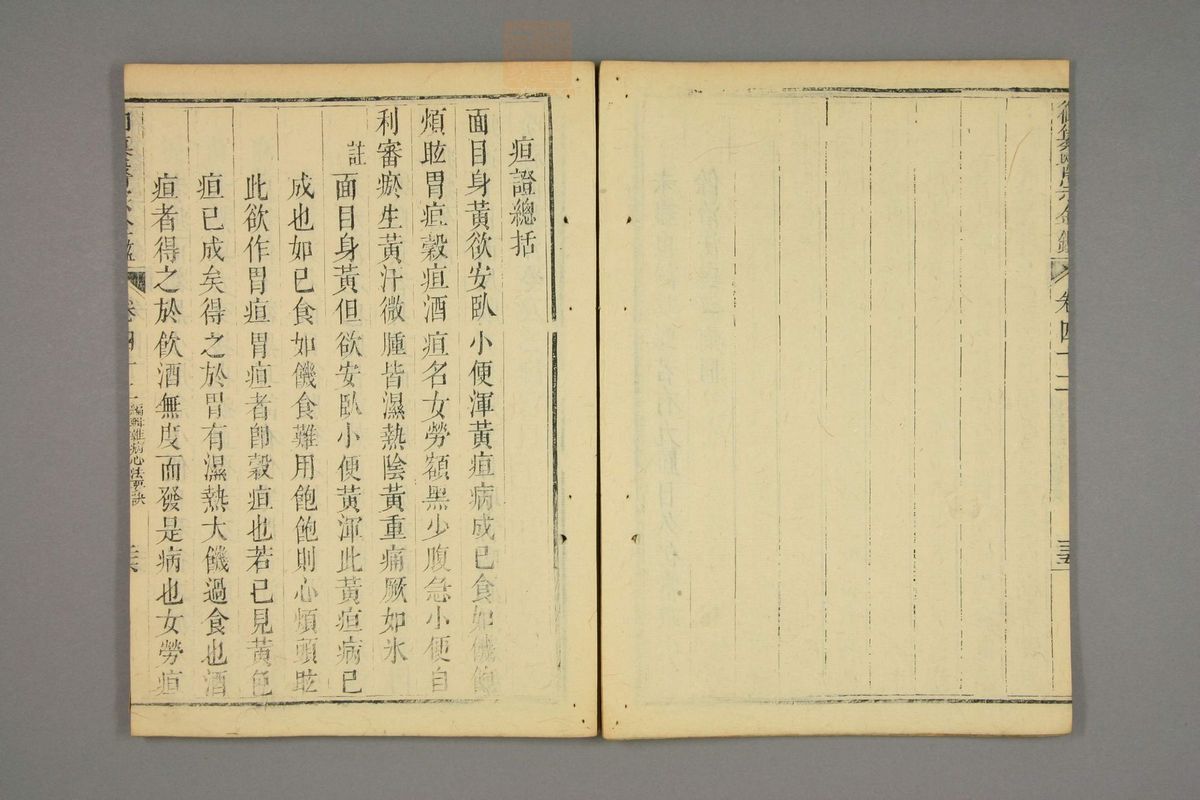 御纂醫宗金鑑 卷四十二 三五
疸證總括
面目身黃欲安臥小便渾黃疸病成已食如饑飽
煩眩胃疸穀疸酒疸名女勞額黑少腹急小便自
利審瘀生黃汗微腫皆濕熱陰黃重痛厥如氷
註面目身黃但欲安臥小便黃渾此黃疸病已
成也如已食如饑食難用飽飽則心煩頭眩
此欲作胃疸胃疸者卽穀疸也若已見黃色
疸已成矣得之於胃有濕熱大饑過食也酒
疸者得之於飲酒無度而發是病也女勞疸
卷四十二 編輯雜病心法要訣 三六